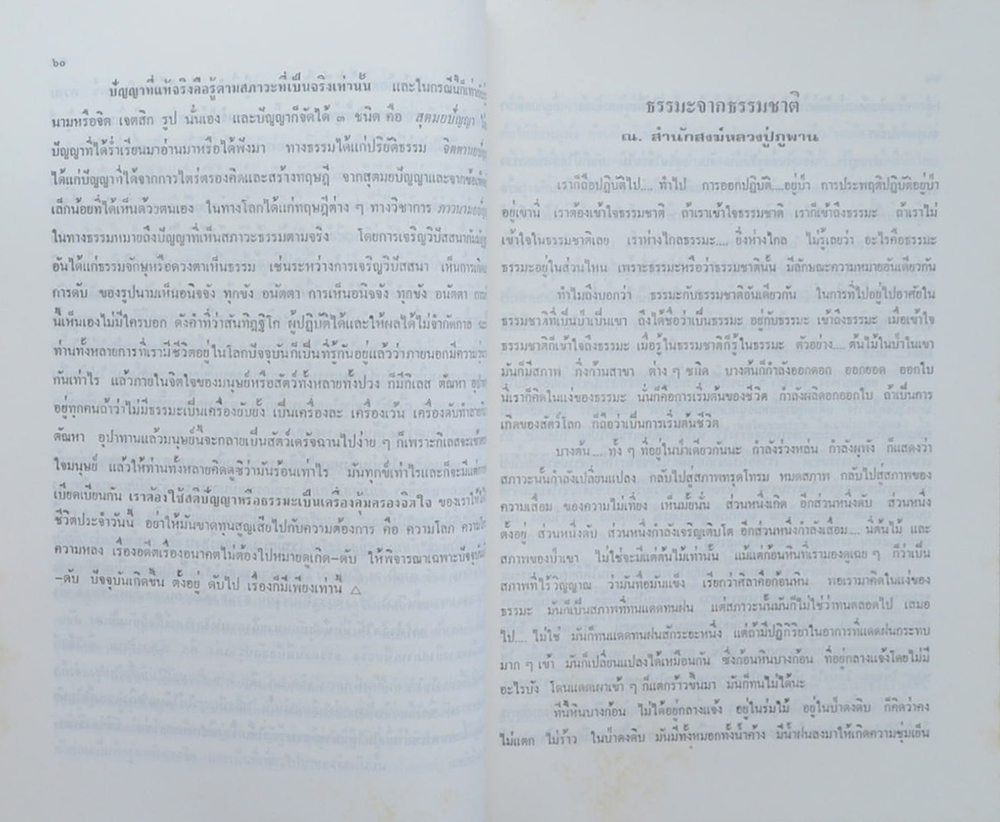 ๖๐
ปัญญาที่แท้จริงคือรู้ตามสภาวะที่เป็นจริงเท่านั้น และในกรณีนี้ก็
นามหรือจิต เจตสิก รูป นั่นเอง และปัญญาก็จัดได้ ๓ ชนิด คือ สุตมยปัญญา
ปัญญาที่ได้ร่ำเรียนมาอ่านมาหรือได้ฟังมา ทางธรรมได้แก่ปริยัติธรรม
ได้แก่ปัญญาที่ได้จากการไตร่ตรองคิดและสร้างทฤษฎี จากสุตมยปัญญาและจาก
เล็กน้อยที่ได้เห็นด้วยตนเอง ในทางโลกได้แก่ทฤษฎีต่าง ๆ ทางวิชาการ
ในทางธรรมหมายถึงปัญญาที่เห็นสภาวะธรรมตามจริง โดยการเจริญวิปัสสนา
อันได้แก่ธรรมจักษุหรือดวงตาเห็นธรรม เช่นระหว่างการเจริญวิปัสสนา เห็นการ
การดับ ของรูปนามเห็นอนิจจัง ทุกขัง อนัตตา การเห็นอนิจจัง ทุกขัง อนัตตา
นี้เห็นเองไม่มีใครบอก ดังคำที่ว่าสันทิฏฐิโก ผู้ปฏิบัติได้และให้ผลได้ไม่จำกัดกาล
ท่านทั้งหลายการที่เรามีชีวิตอยู่ในโลกปัจจุบันก็เป็นที่รู้กันอยู่แล้วว่าภายนอกมีความ
กันเท่าไร แล้วภายในจิตใจของมนุษย์หรือสัตว์ทั้งหลายทั้งปวง ก็มีกิเลส ตัณหา
อยู่ทุกคนถ้าว่าไม่มีธรรมะเป็นเครื่องยับยั้ง เป็นเครื่องละ เครื่องเว้น เครื่องดับ
ตัณหา อุปาทานแล้วมนุษย์นี้จะกลายเป็นสัตว์เดรัจฉานไปง่าย ๆ ก็เพราะกิเลส
ใจมนุษย์ แล้วให้ท่านทั้งหลายคิดดูซิว่ามันร้อนเท่าไร มันทุกข์เท่าไรและก็จะมี
เบียดเบียนกัน เราต้องใช้สติปัญญาหรือธรรมะเป็นเครื่องคุ้มครองจิตใจ ของเรา
ชีวิตประจำวันนี้ อย่าให้มันขาดทุนสูญเสียไปกับความต้องการ คือ ความโลภ
ความหลง เรื่องอดีตเรื่องอนาคตไม่ต้องไปหมายดูเกิด-ดับ ให้พิจารณาเฉพาะปัจจุบัน
-ดับ ปัจจุบันเกิดขึ้น ตั้งอยู่ ดับไป เรื่องก็มีเพียงเท่านี้ △
ธรรมะจากธรรมชาติ
ณ. สำนักสงฆ์หลวงปู่ภูพาน
เราก็ถือปฏิบัติไป.... ทำไป การออกปฏิบัติ....อยู่ป่า การประพฤติปฏิบัติอยู่ป่า
อยู่เขานี่ เราต้องเข้าใจธรรมชาติ ถ้าเราเข้าใจธรรมชาติ เราก็เข้าถึงธรรมะ ถ้าเราไม่
เข้าใจในธรรมชาติเลย เราห่างไกลธรรมะ.... ยิ่งห่างไกล ไม่รู้เลยว่า อะไรคือธรรมะ
ธรรมะอยู่ในส่วนไหน เพราะธรรมะหรือว่าธรรมชาตินั้น มีลักษณะความหมายอันเดียวกัน
ทำไมถึงบอกว่า ธรรมะกับธรรมชาติอันเดียวกัน ในการที่ไปอยู่ไปอาศัยใน
ธรรมชาติที่เป็นป่าเป็นเขา ถึงได้ชื่อว่าเป็นธรรมะ อยู่กับธรรมะ เข้าถึงธรรมะ เมื่อเข้าใจ
ธรรมชาติก็เข้าใจถึงธรรมะ เมื่อรู้ในธรรมชาติก็รู้ในธรรมะ ตัวอย่าง.... ต้นไม้ในป่าในเขา
มันก็มีสภาพ กิ่งก้านสาขา ต่าง ๆ ชนิด บางต้นก็กำลังออกดอก ออกยอด ออกใบ
นี่เราก็คิดในแง่ของธรรมะ นั่นก็คือการเริ่มต้นของชีวิต กำลังผลิดอกออกใบ ถ้าเป็นการ
เกิดของสัตว์โลก ก็ถือว่าเป็นการเริ่มต้นชีวิต
บางต้น.... ทั้ง ๆ ที่อยู่ในป่าเดียวกันนะ กำลังร่วงหล่น กำลังผุพัง ก็แสดงว่า
สภาวะนั้นกำลังเปลี่ยนแปลง กลับไปสู่สภาพทรุดโทรม หมดสภาพ กลับไปสู่สภาพของ
ความเสื่อม ของความไม่เที่ยง เห็นมั้ยนั่น ส่วนหนึ่งเกิด อีกส่วนหนึ่งดับ ส่วนหนึ่ง
ตั้งอยู่ ส่วนหนึ่งดับ ส่วนหนึ่งกำลังเจริญเติบโต อีกส่วนหนึ่งกำลังเสื่อม.... นี่ต้นไม้ และ
สภาพของป่าเขา ไม่ใช่จะมีแต่ต้นไม้เท่านั้น แม้แต่ก้อนหินที่เรามองดูเฉย ๆ ก็ว่าเป็น
สภาพที่ไร้วิญญาณ ว่ามันที่อมันแข็ง เรียกว่าศิลาคือก้อนหิน พอเรามาคิดในแง่ของ
ธรรมะ มันก็เป็นสภาพที่ทนแดดทนฝน แต่สภาวะนั้นมันก็ไม่ใช่ว่าทนตลอดไป เสมอ
ไป.... ไม่ใช่ มันก็ทนแดดทนฝนสักระยะหนึ่ง แต่ถ้ามีปฏิกิริยาในอาการที่แดดฝนกระทบ
มาก ๆ เข้า มันก็เปลี่ยนแปลงได้เหมือนกัน ซึ่งก้อนหินบางก้อน ที่อยู่กลางแจ้งโดยไม่มี
อะไรบัง โดนแดดเผาเข้า ๆ ก็แตกร้าวขึ้นมา มันก็ทนไม่ได้นะ
ทีนี้หินบางก้อน ไม่ได้อยู่กลางแจ้ง อยู่ในร่มไม้ อยู่ในป่าดงดิบ ก็คิดว่าคง
ไม่แตก ไม่ร้าว ในป่าดงดิบ มันมีทั้งหมอกทั้งน้ำค้าง มีน้ำฝนลงมาให้เกิดความชุ่มเย็น